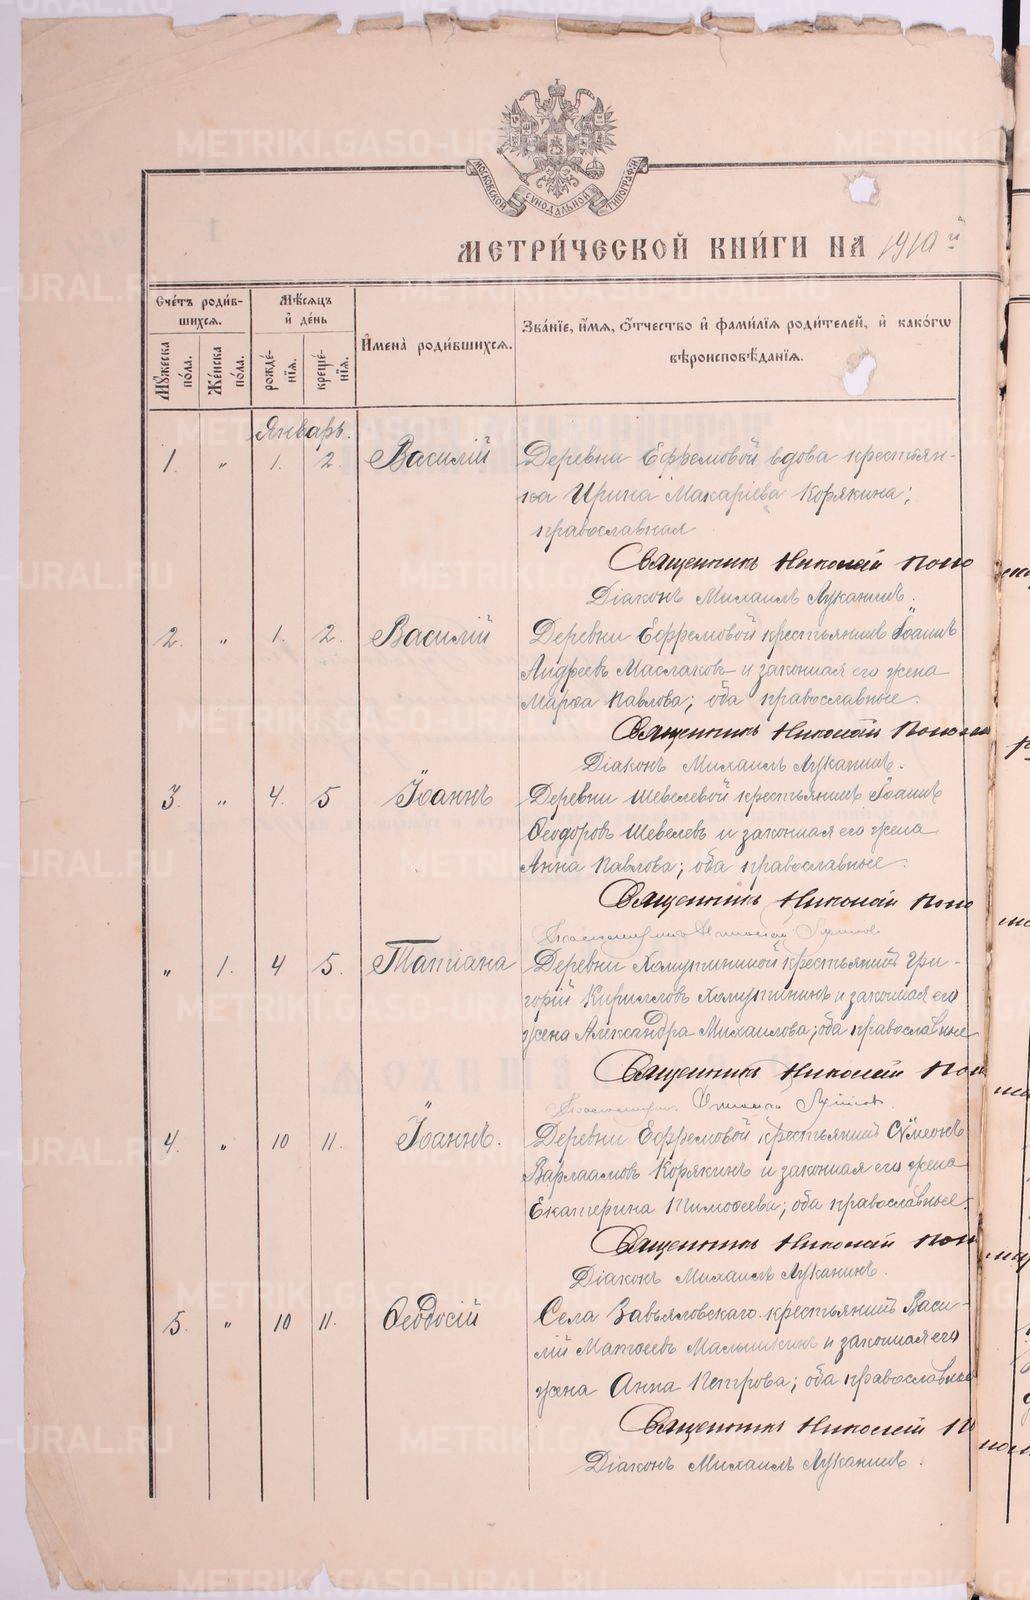 МОСКОВСКОЙ СѴНОДАЛЬНОЙ ТИПОГРАФІИ
МЕТРИ́ЧЕСКОЙ КНИ́ГИ НА 1910й
Сче́тъ роди́в-
шихся.
Мꙋ́жеска по́ла.
Же́нска по́ла.
Мѣ́сяцъ
и҆ де́нь
рожде́-
нїѧ.
креще́-
нїѧ.
И҆мена̀ роди́вшихсѧ.
Зва́нїе, и҆́мѧ, ѻ҆́тчество и҆ фами́лїѧ роди́телей, и҆ како́гѡ
вѣроисповѣ́данїѧ.
Январь.
1. „ 1. 2. Василій Деревни Ефремовой вдова крестьян-
ка Ирина Макаріева Корякина;
православная
Священникъ Николай Попо
Діаконъ Михаилъ Луканинъ.
2. „ 1. 2. Василій Деревни Ефремовой крестьянинъ Іоаннъ
Андреевъ Маслаковъ и законная его жена
Марѳа Павлова; оба православные.
Священникъ Николай Попова
Діаконъ Михаилъ Луканинъ.
3. „ 4. 5 Іоаннъ Деревни Шевелевой крестьянинъ Іоаннъ
Ѳеодоровъ Шевелевъ и законная его жена
Анна Павлова; оба православные.
Священникъ Николай Попо
Псаломщикъ
„ 1. 4 5. Татіана Деревни Хомутининой крестьянинъ Гри-
горій Кирилловъ Хомутининъ и законная его
жена Александра Михаилова; оба православные
Священникъ Николай Поп
Псаломщикъ
4. „ 10 11. Іоаннъ. Деревни Ефремовой крестьянинъ Сѵмеонъ
Варлаамовъ Корякинъ и законная его жена
Екатерина Тимоѳеева; оба православные.
Священникъ Николай Поп
Діаконъ Михаилъ Луканинъ.
5. „ 10 11. Ѳеодосій Села Завьяловскаго крестьянинъ Васи-
лій Матѳеевъ Малышкинъ и законная его
жена Анна Петрова; оба православные
Священникъ Николай По
Діаконъ Михаилъ Луканинъ.
METRIKI.GASO-URAL.RU